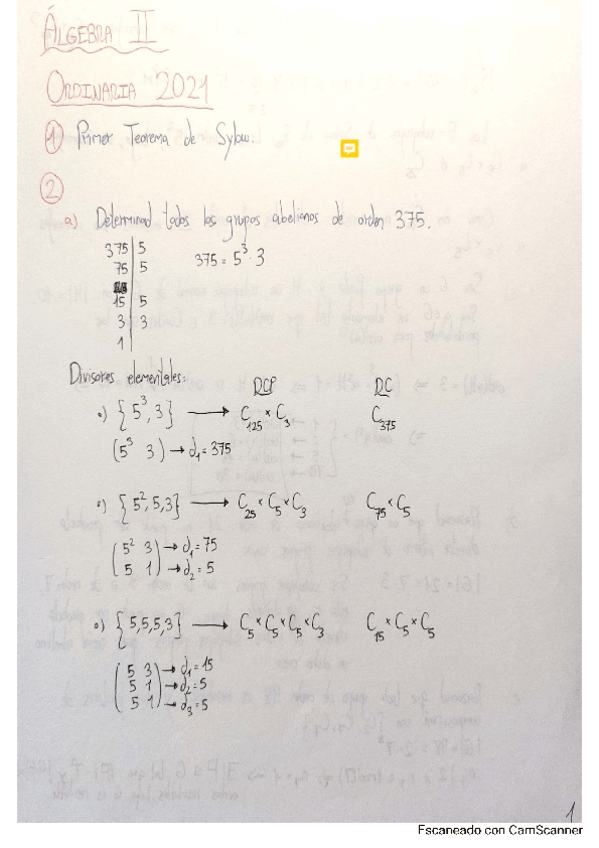 ÁLGEBRA II
ORDINARIA 2021
1 Primer Teorema de Sylow.
2
a) Determinad todos los grupos abelianos de orden 375.
375 | 5
75 | 5 375 = 5³ · 3
15 | 5
3 | 3
1 |
Divisores elementales: DCP DC
•) {5³, 3} → C₁₂₅ × C₃ C₃₇₅
(5³ 3) → d₁ = 375
•) {5², 5, 3} → C₂₅ × C₅ × C₃ C₇₅ × C₅
(5² 3) → d₁ = 75
(5 1) → d₂ = 5
•) {5, 5, 5, 3} → C₅ × C₅ × C₅ × C₃ C₁₅ × C₅ × C₅
(5 3) → d₁ = 15
(5 1) → d₂ = 5
(5 1) → d₃ = 5
1
Escaneado con CamScanner